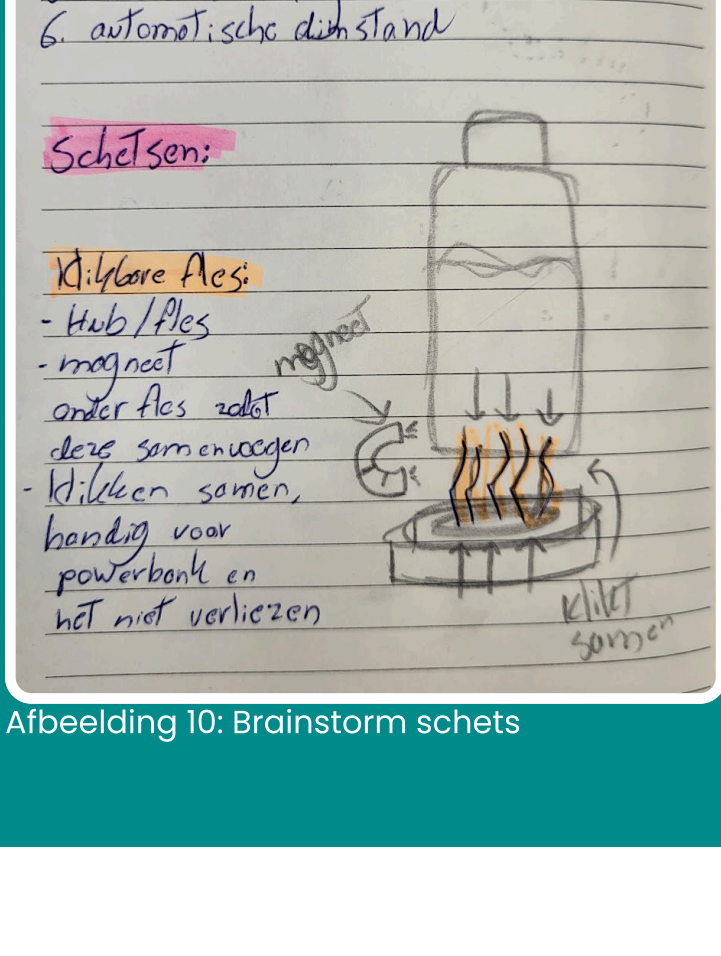 6. automatische dimstand
Schetsen:
Klikbare fles:
- Hub/fles
- magneet
onder fles zodat
deze samenvoegen
- klikken samen,
handig voor
powerbank en
het niet verliezen
magneet
klikt
samen
Afbeelding 10: Brainstorm schets